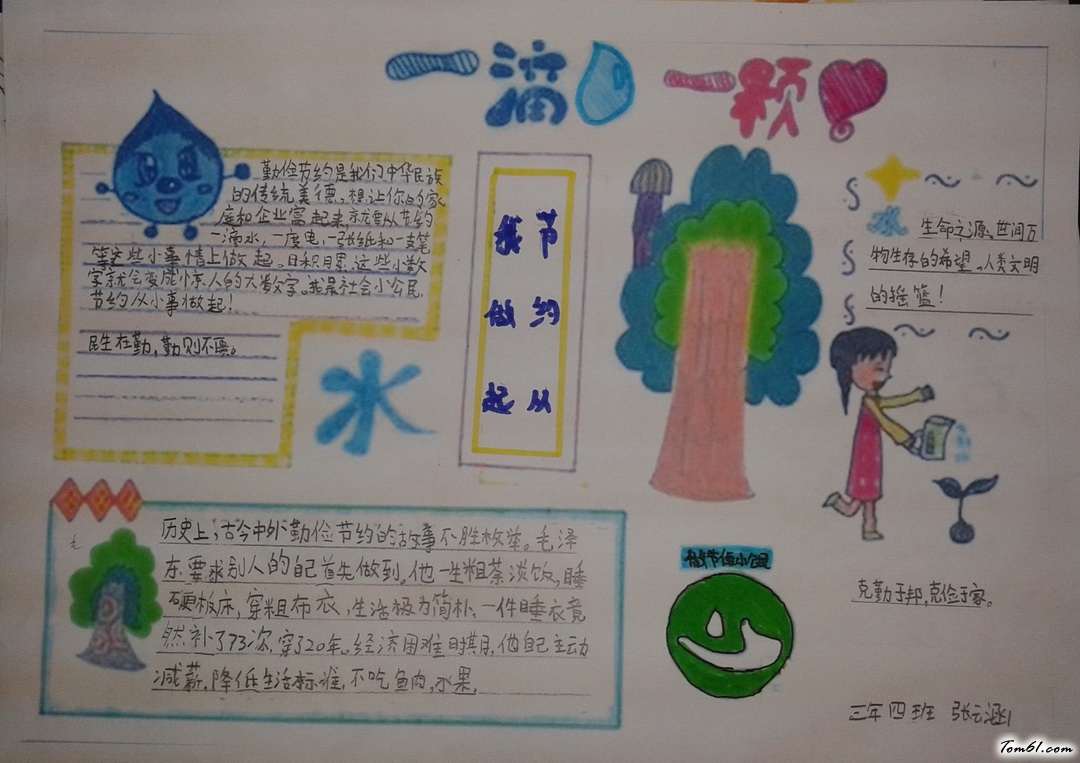 一滴 一颗
勤俭节约是我们中华民族
的传统美德。想让你的家
庭和企业富起来,就要从节约
一滴水,一度电,一张纸和一支笔
等这些小事情上做起。日积月累,这些小数
字就会变成惊人的大数字。我是社会小公民,
节约从小事做起!
民生在勤,勤则不匮。
水
节约从
我做起
水 生命之源、世间万
物生存的希望、人类文明
的摇篮!
历史上,古今中外勤俭节约的故事不胜枚举。毛泽
东要求别人的自己首先做到。他一生粗茶淡饭,睡
硬板床,穿粗布衣,生活极为简朴、一件睡衣竟
然补了73次,穿了20年。经济困难时期,他自己主动
减薪,降低生活标准,不吃鱼肉,水果。
做节俭小公民
克勤于邦,克俭于家。
三年四班 张云涵
Tom61.com